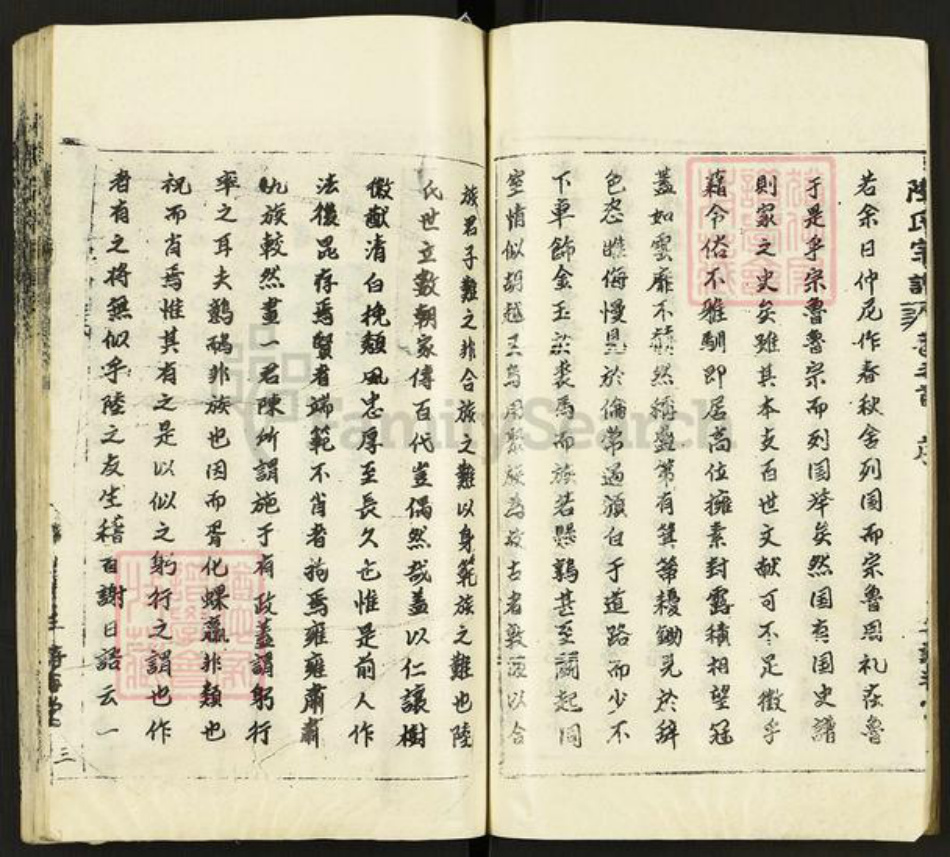 陸氏宗譜 卷之首 序
若余曰仲尼作春秋舍列國而宗魯周礼在魯
于是乎宗魯魯宗而列国举矣然国有国史譜
則家之史矣雖其本支百世文献可不足徵乎
藉令俗不雅馴即居高位擁素封露積相望冠
蓋如雲靡不 然稱盛第有箕箒耰鋤見於辞
色恣睢侮慢見於倫常過須白于道路而少不
下車飾金玉衣裘馬而族若懸鶉甚至鬩起同
室情似胡越又焉用聚族為故古者敦 以合
族君子難之非合族之難以身範族之難也陸
氏世立數朝家傳百代豈偶然哉蓋以仁讓樹
徽猷清白挽頹風忠厚至長久也惟是前人作
法後昆存焉賢者端範不肖者 焉雍雍肅肅
九族較然畫一君陳所謂施于有政蓋謂躬行
率之耳夫鷄 非族也因而胥化螺蠃非類也
祝而肖焉惟其有之是以似之躬行之謂也作
者有之将無似乎陸之友生稽首謝曰語云一
三
FamilySearch